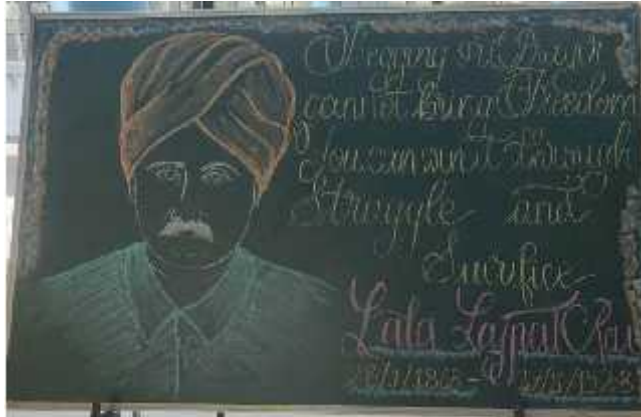 Begging
cannot bring Freedom
You can win it through
Struggle and
Sacrifice
Lala Lajpat Rai